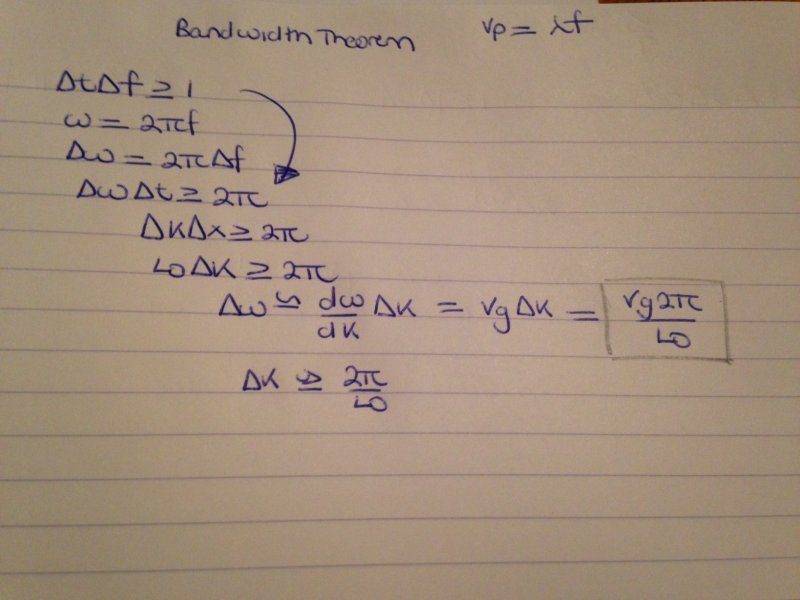 Bandwidth Theorem vp = λf
ΔtΔf ≥ 1
ω = 2πf
Δω = 2πΔf
ΔωΔt ≥ 2π
ΔkΔx ≥ 2π
L0 Δk ≥ 2π
Δω ≃ dω/dk Δk = vgΔk = vg2π/L0
Δk ≥ 2π/L0